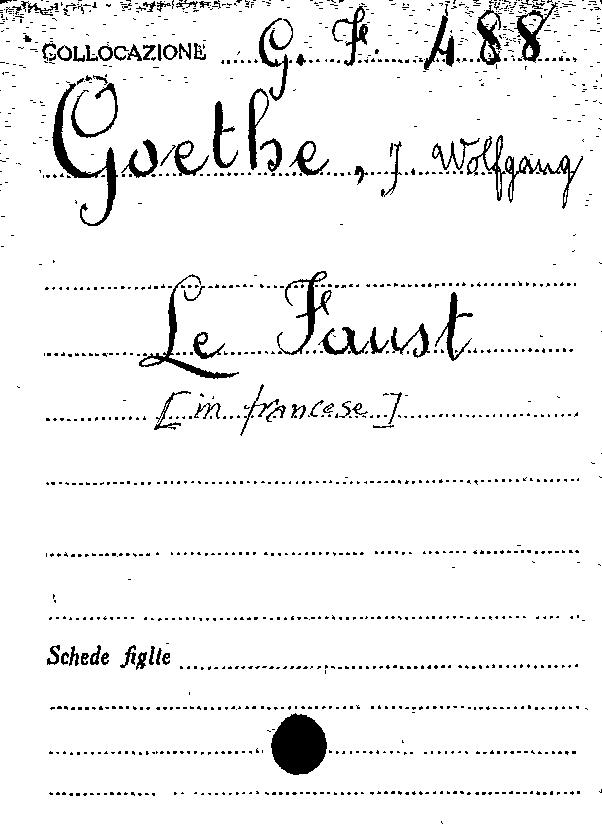 COLLOCAZIONE G. F. 488
Goethe, J. Wolfgang
Le Faust
[in francese]
Schede figlie